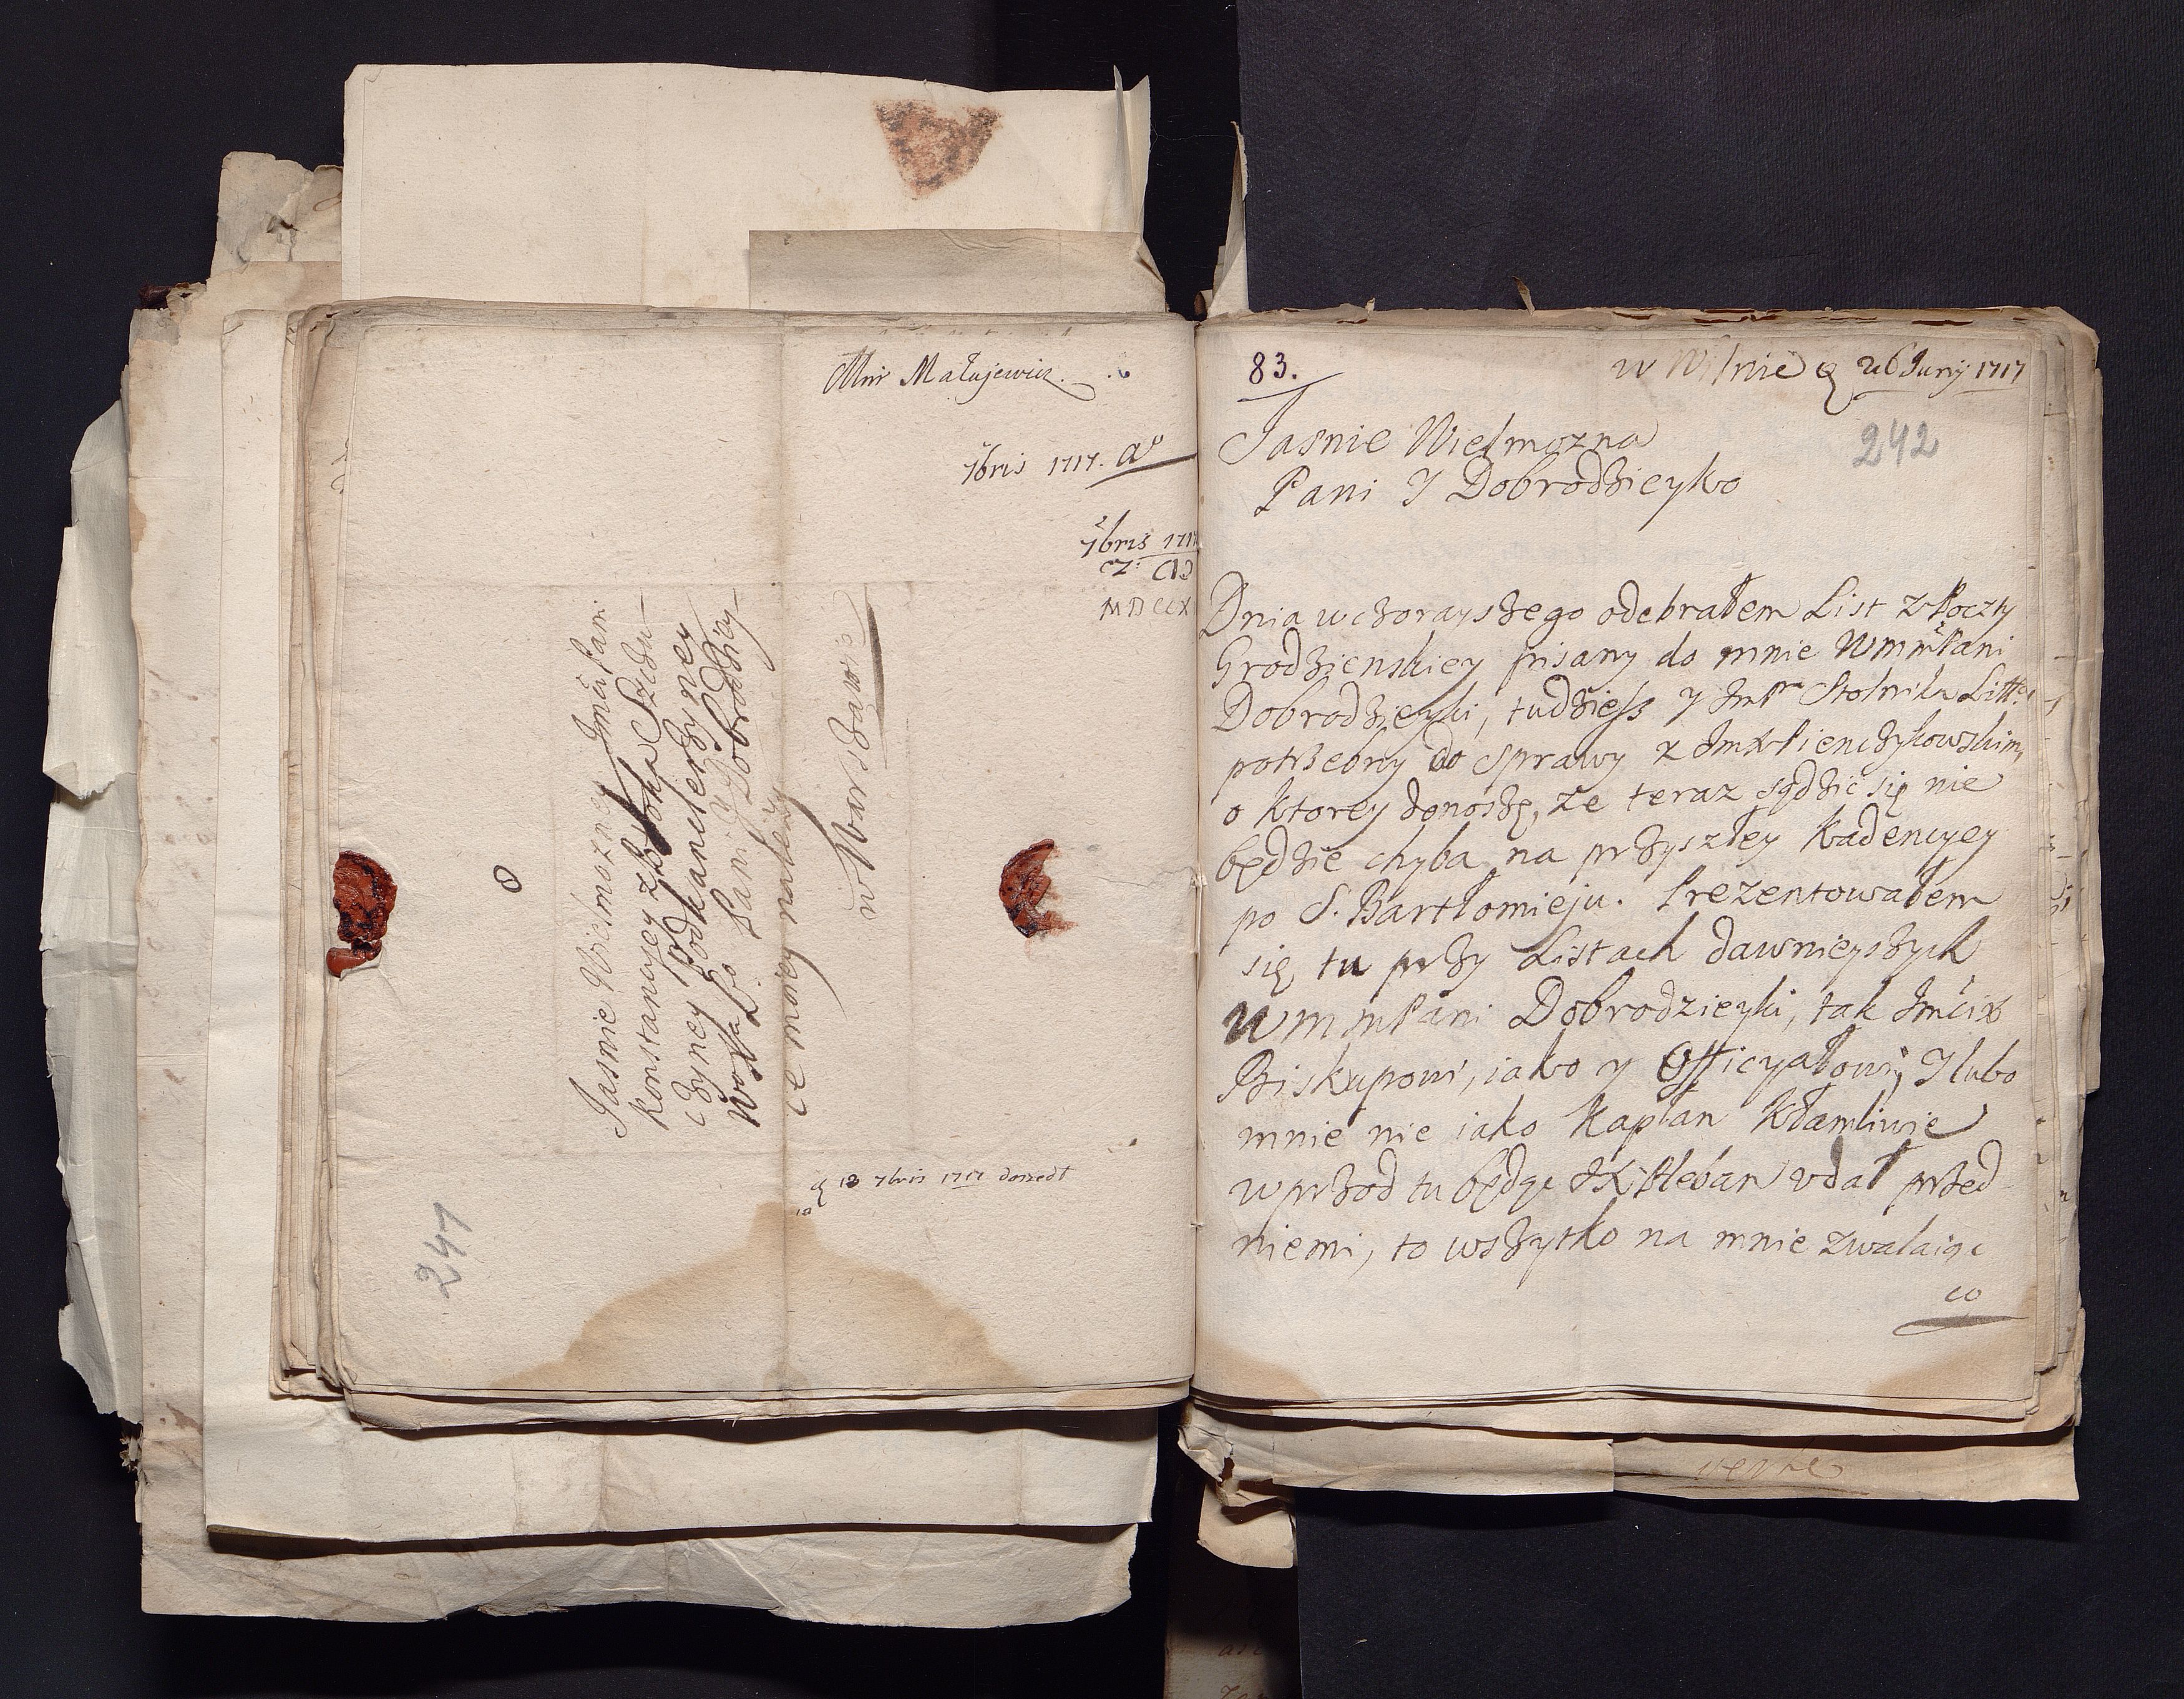 Mm Małujewicz.
7bris 1717. Ao
7bris 1717
MDCCX
Jasnie Wielmozney Jmci Pani
Konstancyey z Potoka Szczu
czyney Podkanclerzyney
Wo XLo Pani y Dobrodziey
ce moiey należy
w Warszawie
18 7bris 1717 doszedł
241
83.
w Wilnie 26 Juny 1717
242
Jasnie Wielmozna
Pani J Dobrodzieyko
Dnia wczorayszego odebrałem List z Poczty
Grodzienskiey pisany do mnie WmmPani
Dobrodzieyki, tudziesz y JmPa Stolnika Litt
potrzebny do sprawy z Jmx Pienczykowskim,
o ktorey donoszę, ze teraz sądzić się nie
będzie chyba na przyszłey Kadencyey
po S. Bartłomieju. Prezentowałem
się tu przy Listach dawnieyszych
WmmPani Dobrodzieyki, tak Jmcix
Biskupowi, iako y Officyałowi, J lubo
mnie nie iako Kapłan Kłamliwie
wprzod tu będąc JX Pleban udał przed
niemi, to wszytko na mnie zwalaiąc
co